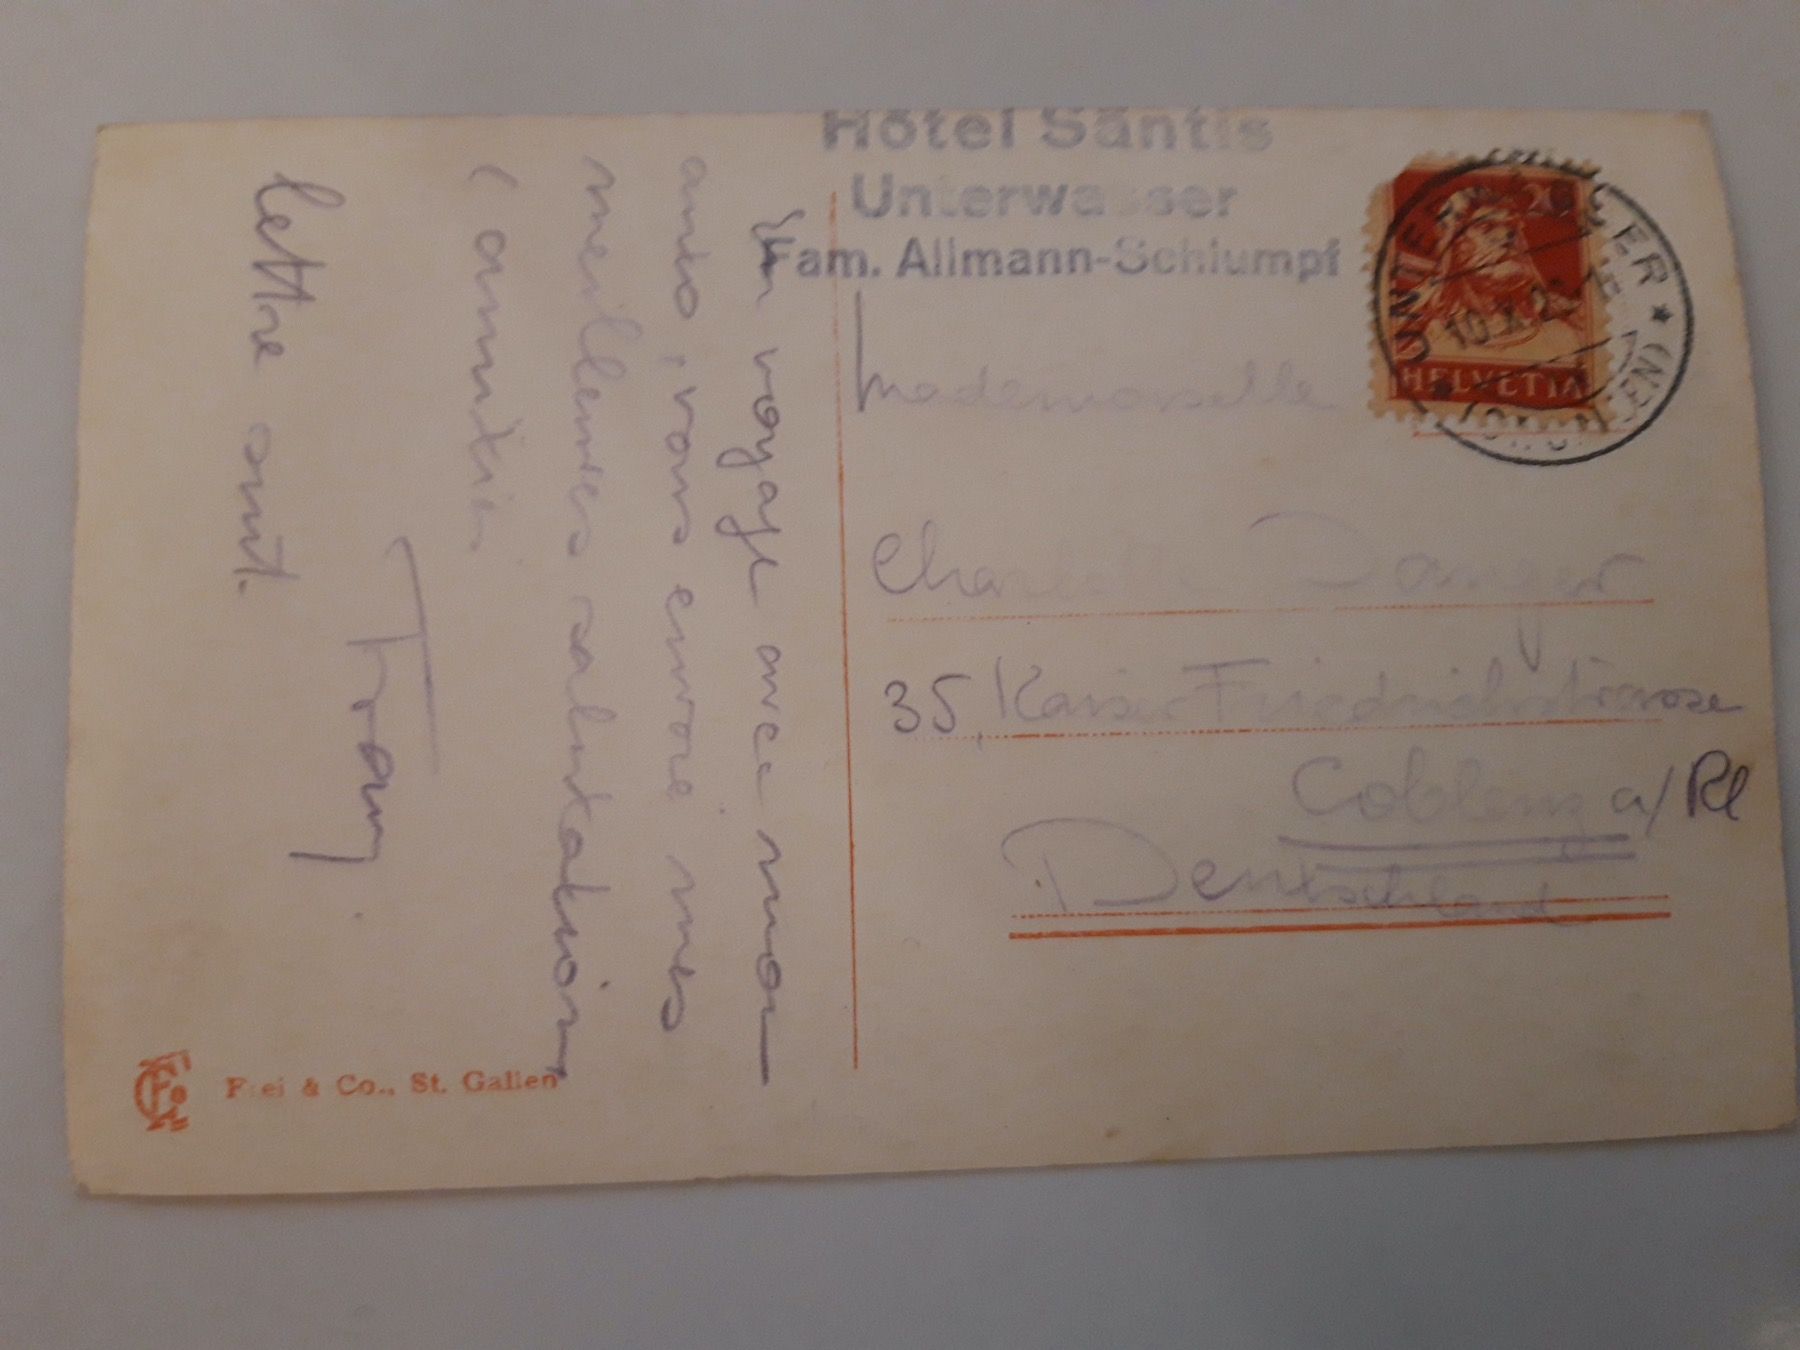 Hôtel Säntis
Unterwasser
Fam. Allmann-Schlumpf
UNTERWASSER
(ST. GALLEN)
10. X. 2
20
HELVETIA
En voyage avec mon
auto, vous envoie mes
meilleures salutations
(amitiés
lettre suit.
Mademoiselle
Charlotte
35, Kaiser Friedrichstrasse
Coblenz a/ Rh
Deutschland
Frei & Co., St. Gallen